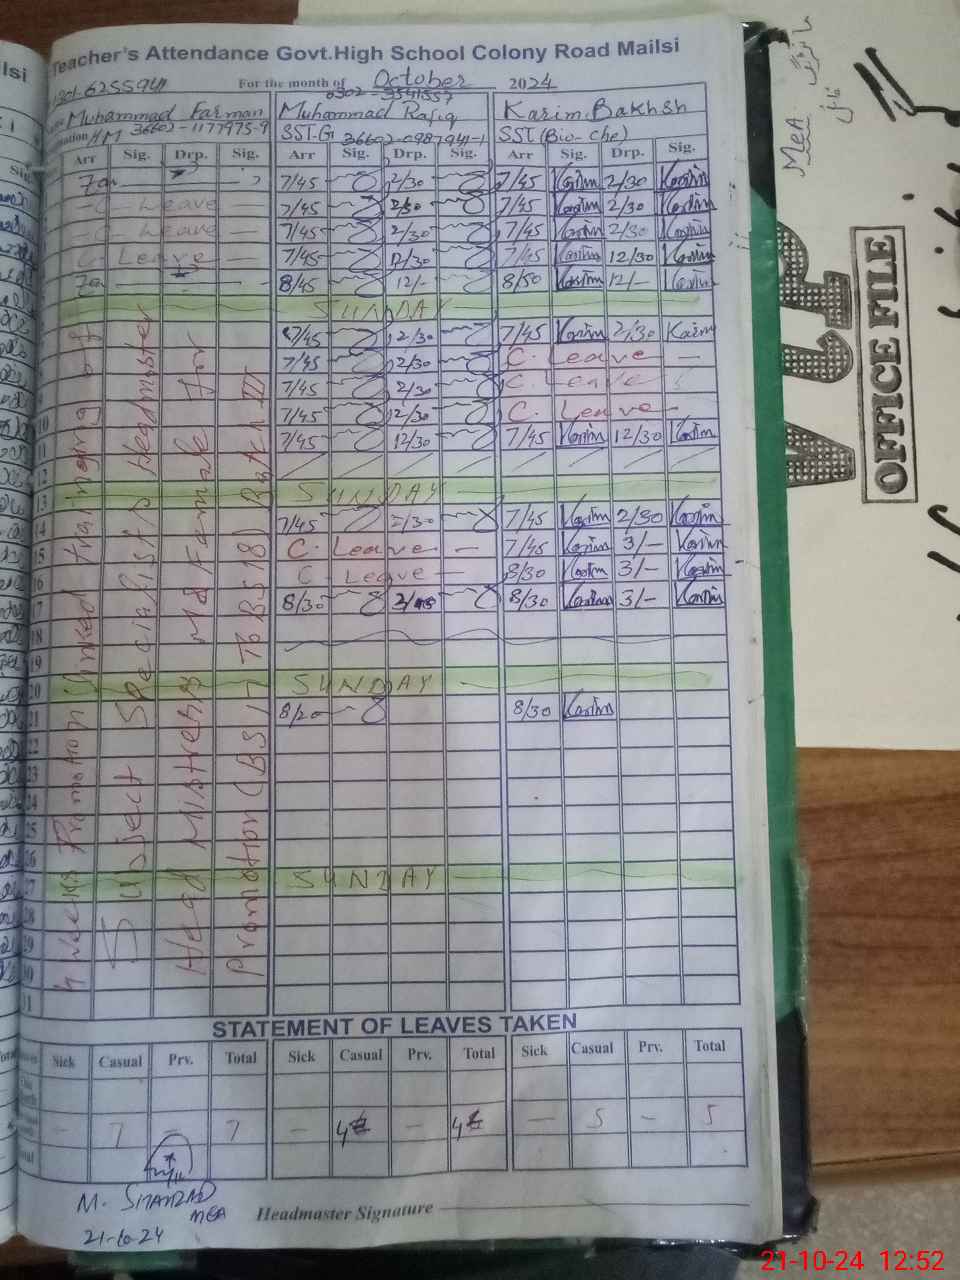 Teacher's Attendance Govt.High School Colony Road Mailsi
For the month of October 2024
Muhammad Farman
HM 36602-1177975-9
0302-3541557
Muhammad Rafiq
SST-G
Karim Bakhsh
SST (Bio-Che)
Arr Sig. Drp. Sig. Arr Sig. Drp. Sig. Arr Sig. Drp. Sig.
7/45 2/30 7/45 Karim 2/30 Karim
-C- Leave - 7/45 2/30 7/45 Karim 2/30 Karim
-C- Leave - 7/45 2/30 7/45 Karim 2/30 Karim
C. Leave - 7/45 12/30 7/45 Karim 12/30 Karim
8/45 12/- 8/50 Karim 12/- Karim
SUNDAY
7/45 2/30 7/45 Karim 2/30 Karim
7/45 2/30 C. Leave -
7/45 2/30 C. Leave
7/45 2/30 C. Leave -
7/45 12/30 7/45 Karim 12/30 Karim
SUNDAY
7/45 2/30 7/45 Karim 2/30 Karim
C. Leave - 7/45 Karim 3/- Karim
C. Leave - 8/30 Karim 3/- Karim
8/30 8/30 Karim 3/- Karim
SUNDAY
8/20 8/30 Karim
SUNDAY
10
11
12
13
14
15
16
17
18
19
20
21
22
23
24
25
26
27
28
29
4 weeks Promotion linked training of
Subject Specialists Headmaster
Head Mistress M& Female for
Promotion (BS 17 To BS 18) Batch III
STATEMENT OF LEAVES TAKEN
Sick Casual Prv. Total Sick Casual Prv. Total Sick Casual Prv. Total
- 7 - 7 - 4 - 4 - 5 - 5
M. SHAHZAD
MEA
21-10-24
Headmaster Signature
MeA
OFFICE FILE
21-10-24 12:52